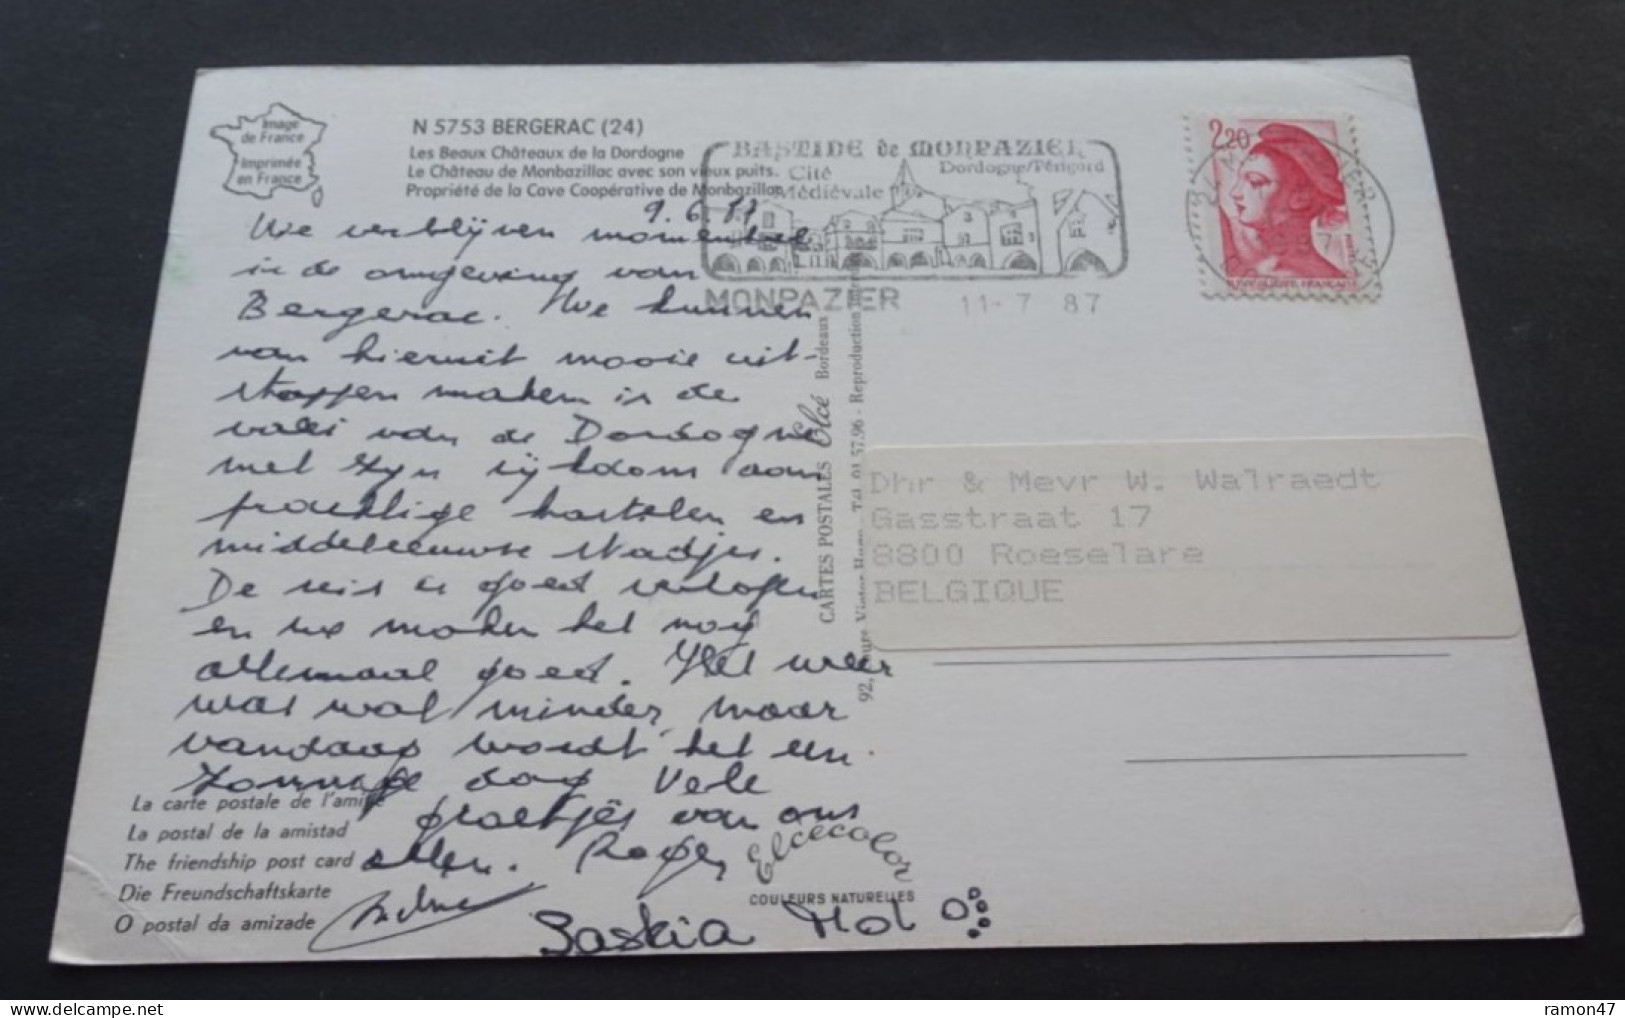 Image
de France
Imprimée
en France
N 5753 BERGERAC (24)
Les Beaux Châteaux de la Dordogne
Le Château de Monbazillac avec son vieux puits.
Propriété de la Cave Coopérative de Monbazillac
BASTIDE de MONPAZIER
Dordogne/Périgord
Cité
Médiévale
MONPAZIER
11-7 87
2,20
We verblijven momenteel
in de omgeving van
Bergerac. We kunnen
van hieruit mooie uit-
stappen maken in de
vallei van de Dordogne
met zijn rijkdom aan
prachtige kastelen en
middeleeuwse stadjes.
De reis is goed verlopen
en we maken het nog
allemaal goed. Het weer
was wat minder, maar
vandaag wordt het een
zonnige dag. Vele
groetjes van ons
allen. Roger
Saskia Mol
CARTES POSTALES Elcé Bordeaux
57.96 - Reproduction
Dhr & Mevr W. Walraedt
Gasstraat 17
8800 Roeselare
BELGIQUE
La carte postale de l'amitié
La postal de la amistad
The friendship post card
Die Freundschaftskarte
O postal da amizade
Elcécolor
COULEURS NATURELLES
ramon47